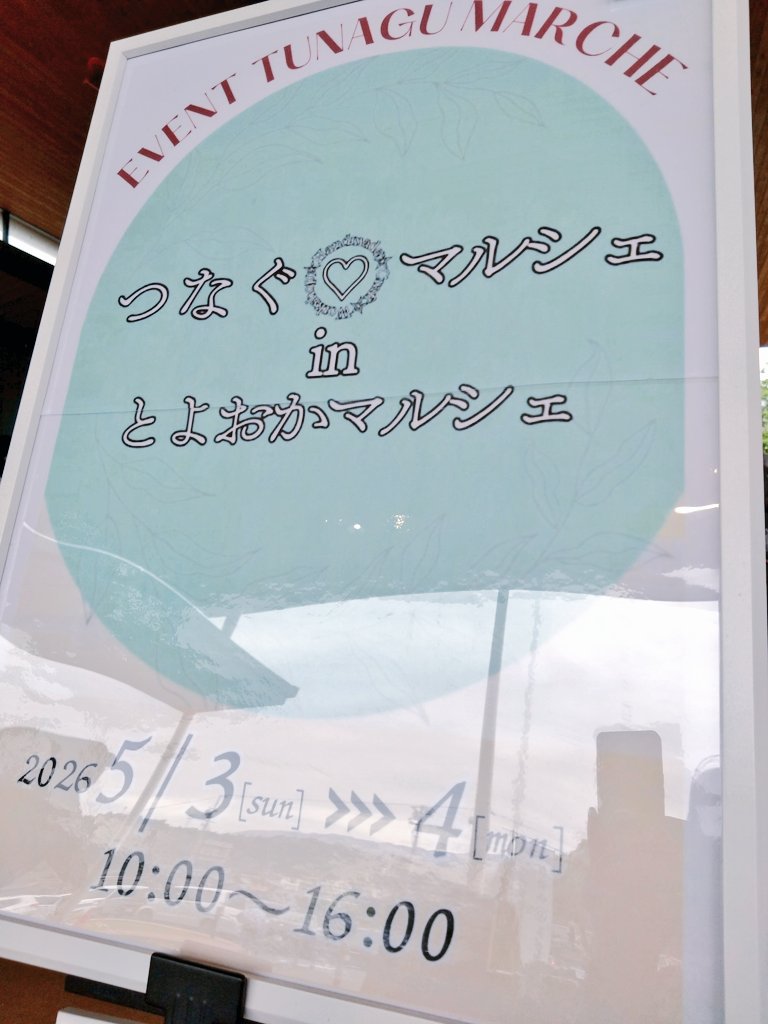 EVENT TUNAGU MARCHE
つなぐ♡マルシェ
in
とよおかマルシェ
2026 5/3[sun] >>> 4[mon]
10:00〜16:00